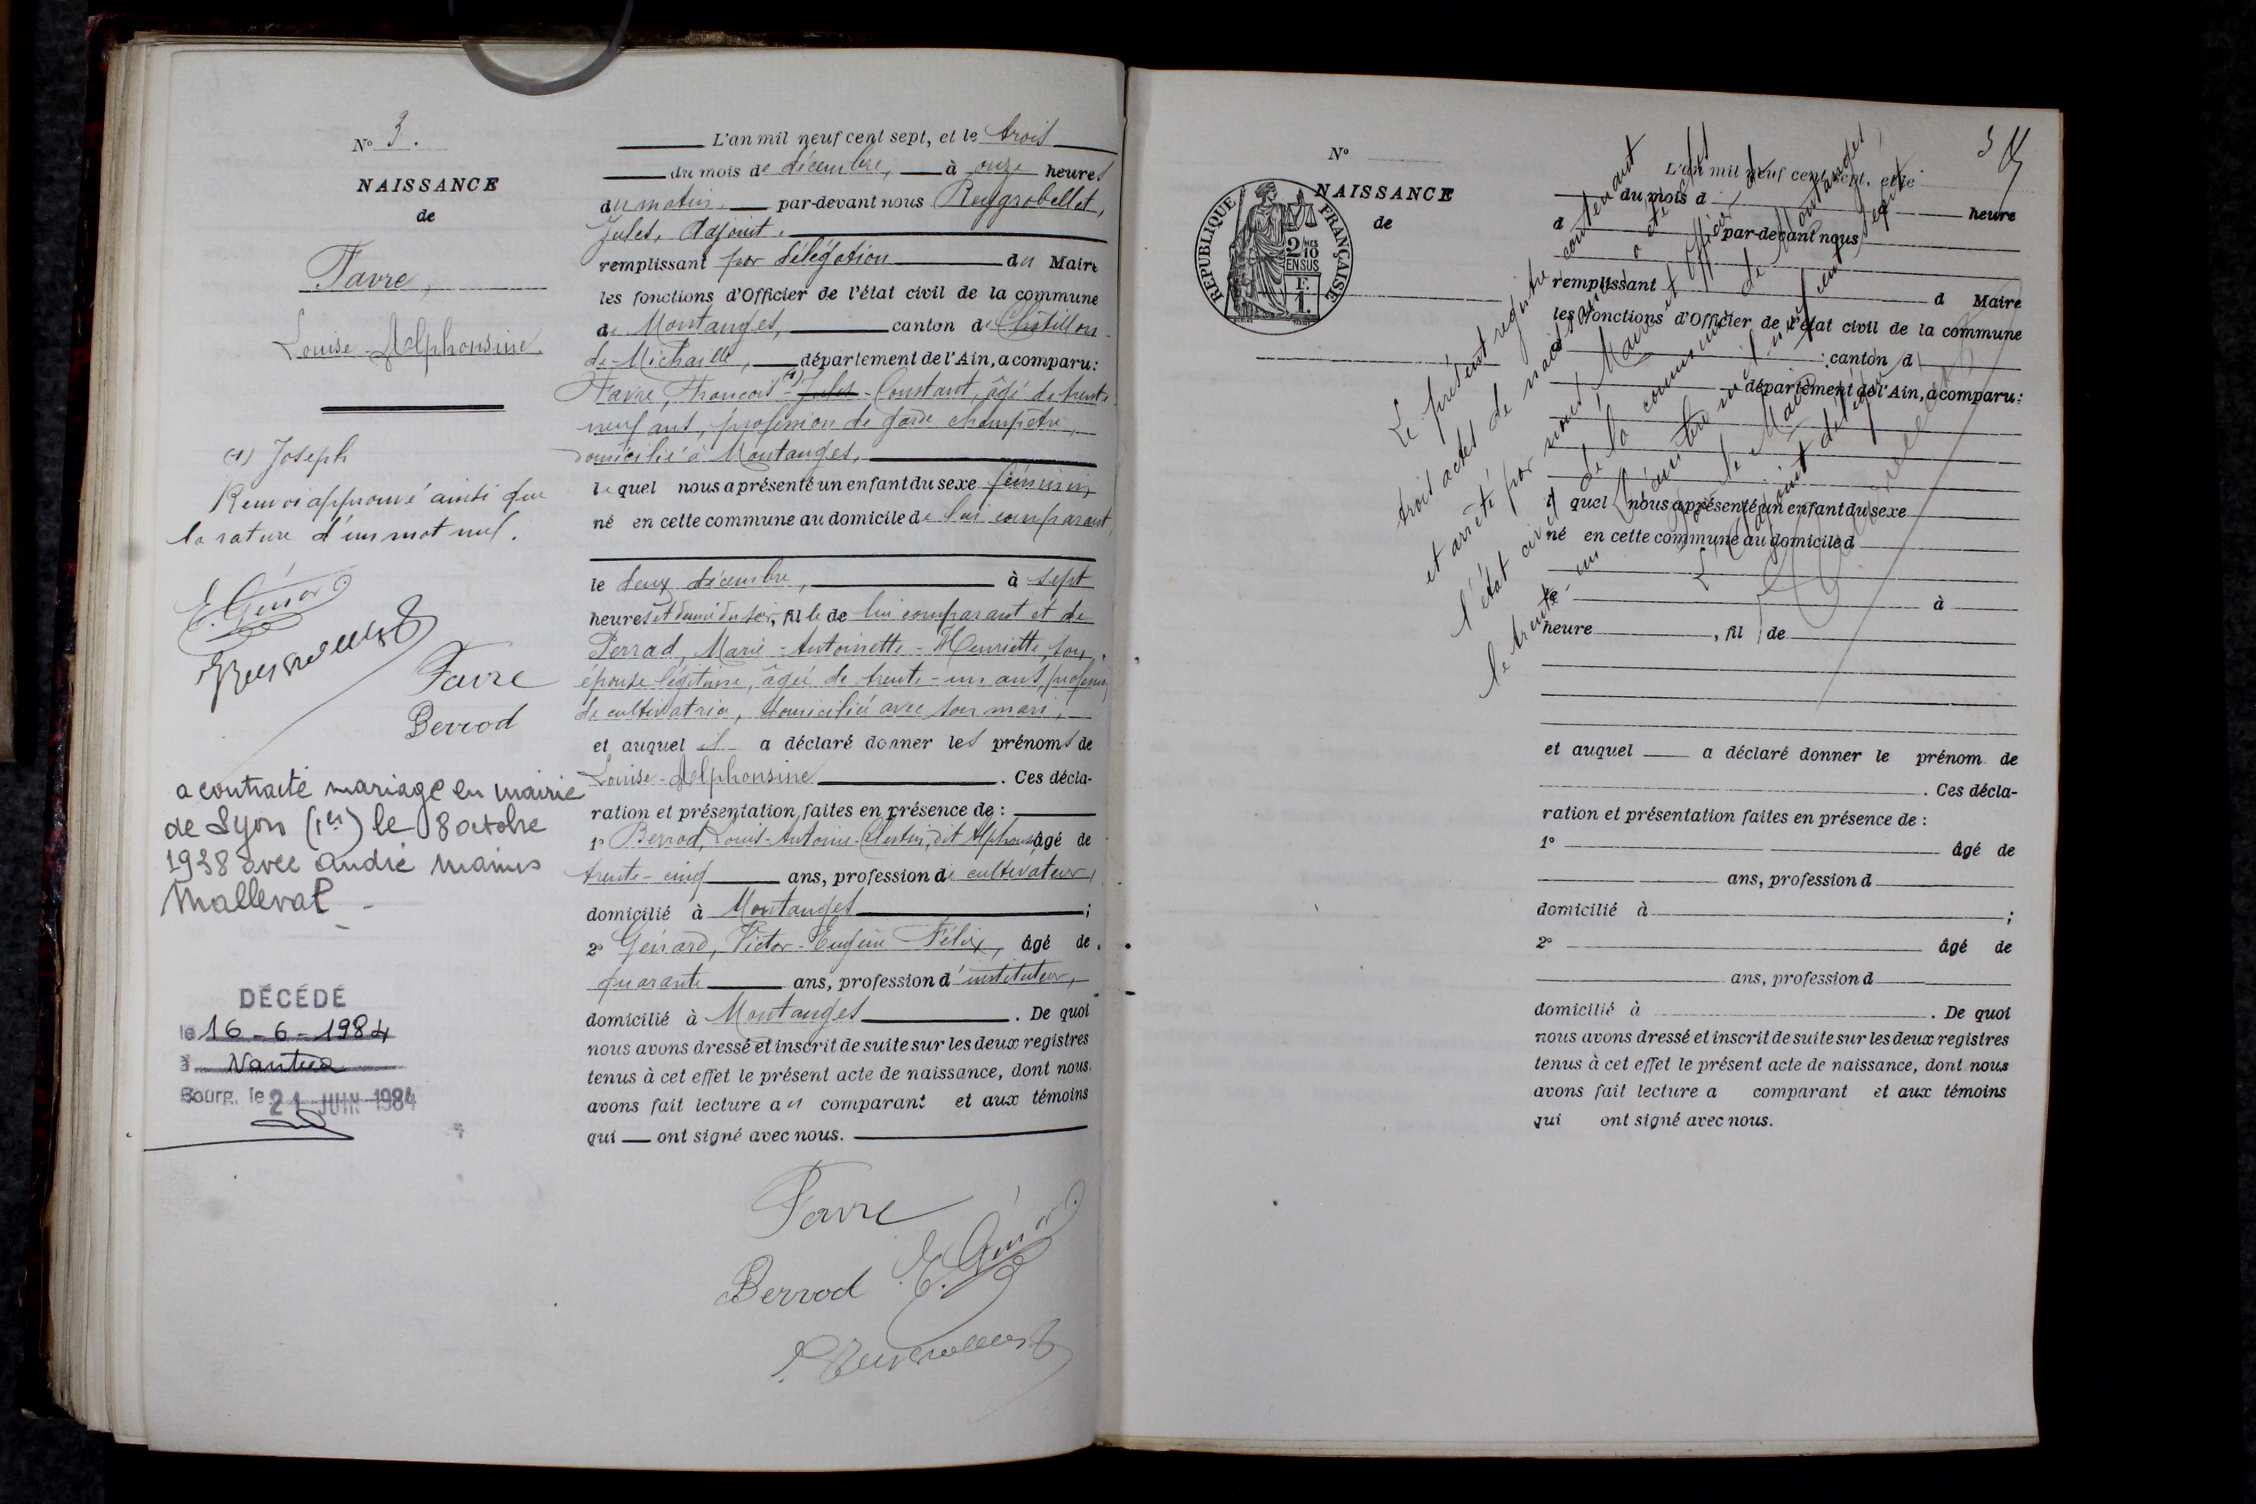 N° 3.
NAISSANCE
de
Favre,
Louise-Alphonsine.
(1) Joseph
Renvoi approuvé ainsi que
la rature d'un mot nul.
E. Génard
Favre
Berrod
a contracté mariage en mairie
de Lyon (1er) le 8 octobre
1938 avec André Marius
Malleval -
DÉCÉDÉ
le 16-6-1984
à Nantua
Bourg, le 21 JUIN 1984
L'an mil neuf cent sept, et le trois
du mois de décembre, à onze heures
du matin, par-devant nous Reygrobellet,
Jules, Adjoint,
remplissant par délégation du Maire
les fonctions d'Officier de l'état civil de la commune
de Montanges, canton de Châtillon-
de-Michaille, département de l'Ain, a comparu:
Favre, François (1) Jules - Constant, âgé de trente-
neuf ans, profession de garde champêtre,
domicilié à Montanges,
lequel nous a présenté un enfant du sexe féminin,
né en cette commune au domicile de lui comparant,
le deux décembre, à sept
heures et demie du soir, fille de lui comparant et de
Perrad, Marie-Antoinette-Henriette, son
épouse légitime, âgée de trente-un ans, profession
de cultivatrice, domiciliée avec son mari,
et auquel il a déclaré donner les prénoms de
Louise-Alphonsine. Ces décla-
ration et présentation faites en présence de :
1° Berrod, Louis-Antoine-Clestin, dit Alphonse, âgé de
trente-cinq ans, profession de cultivateur,
domicilié à Montanges;
2° Génard, Victor-Eugène Félix, âgé de
quarante ans, profession d'instituteur,
domicilié à Montanges. De quoi
nous avons dressé et inscrit de suite sur les deux registres
tenus à cet effet le présent acte de naissance, dont nous
avons fait lecture au comparant et aux témoins
qui ont signé avec nous.
Favre
Berrod E. Génard
N°
NAISSANCE
de
RÉPUBLIQUE FRANÇAISE
2/10 EN SUS
F. 1.
3
L'an mil neuf cent sept, et le
du mois d heure
d par-devant nous
remplissant d Maire
les fonctions d'Officier de l'état civil de la commune
d canton d
département de l'Ain, a comparu:
quel nous a présenté un enfant du sexe
né en cette commune au domicile d
le à
heure , fil de
et auquel a déclaré donner le prénom de
. Ces décla-
ration et présentation faites en présence de :
1° âgé de
ans, profession d
domicilié à ;
2° âgé de
ans, profession d
domicilié à . De quoi
nous avons dressé et inscrit de suite sur les deux registres
tenus à cet effet le présent acte de naissance, dont nous
avons fait lecture a comparant et aux témoins
qui ont signé avec nous.
Le présent registre contenant
trois actes de naissance a été clos
et arrêté par nous, Maire et Officier de
l'état civil de la commune de Montanges,
le trente-un décembre mil neuf cent sept
Pour le Maire
L'Adjoint délégué,